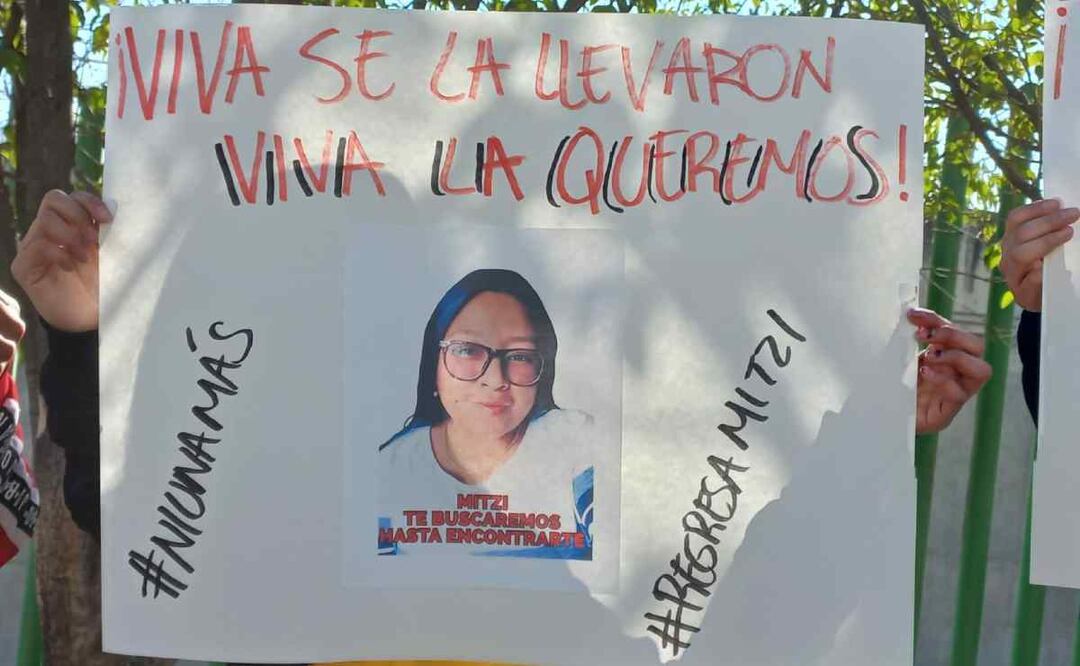 ¡VIVA SE LA LLEVARON
VIVA LA QUEREMOS!
#NIUNAMÁS
MITZI
TE BUSCAREMOS
HASTA ENCONTRARTE
#REGRESAMITZI
¡